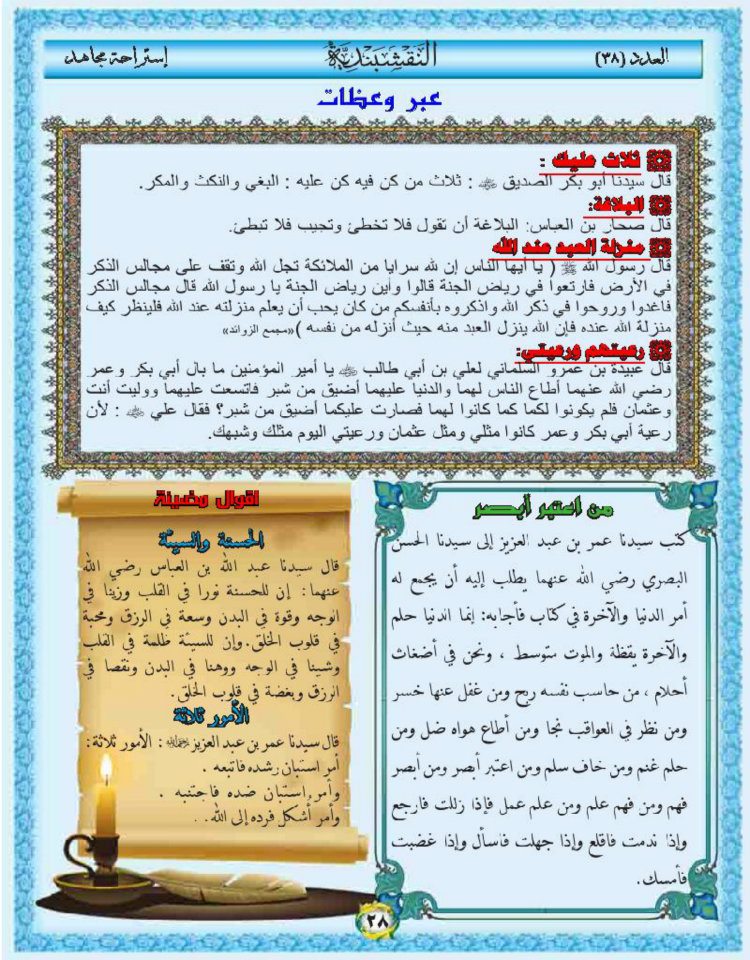 العدد (٣٨)
النَّقْشَبَنْدِيَّة
إستراحة مجاهد
عبر وعظات
ثلاث عليك :
قال سيدنا أبو بكر الصديق ﷺ : ثلاث من كن فيه كن عليه : البغي والنكث والمكر.
البلاغة:
قال صحار بن العباس: البلاغة أن تقول فلا تخطئ وتجيب فلا تبطئ.
منزلة العبد عند الله
قال رسول الله ﷺ ( يا أيها الناس إن لله سرايا من الملائكة تجل الله وتقف على مجالس الذكر
في الأرض فارتعوا في رياض الجنة قالوا وأين رياض الجنة يا رسول الله قال مجالس الذكر
فاغدوا وروحوا في ذكر الله واذكروه بأنفسكم من كان يحب أن يعلم منزلته عند الله فلينظر كيف
منزلة الله عنده فإن الله ينزل العبد منه حيث أنزله من نفسه )«مجمع الزوائد»
رعيتهم ورعيتي:
قال عبيدة بن عمرو السلماني لعلي بن أبي طالب يا أمير المؤمنين ما بال أبي بكر وعمر
رضي الله عنهما أطاع الناس لهما والدنيا عليهما أضيق من شبر فاتسعت عليهما ووليت أنت
وعثمان فلم يكونوا لكما كما كانوا لهما فصارت عليكما أضيق من شبر؟ فقال علي : لأن
رعية أبي بكر وعمر كانوا مثلي ومثل عثمان ورعيتي اليوم مثلك وشبهك.
من اعتبر أبصر
كتب سيدنا عمر بن عبد العزيز إلى سيدنا الحسن
البصري رضي الله عنهما يطلب إليه أن يجمع له
أمر الدنيا والآخرة في كتاب فأجابه: إنما الدنيا حلم
والآخرة يقظة والموت متوسط ، ونحن في أضغاث
أحلام ، من حاسب نفسه ربح ومن غفل عنها خسر
ومن نظر في العواقب نجا ومن أطاع هواه ضل ومن
حلم غنم ومن خاف سلم ومن اعتبر أبصر ومن أبصر
فهم ومن فهم علم ومن علم عمل فإذا زللت فارجع
وإذا ندمت فاقلع وإذا جهلت فاسأل وإذا غضبت
فأمسك.
اقوال مضيئة
الحسنة والسيئة
قال سيدنا عبد الله بن العباس رضي الله
عنهما: إن للحسنة نورا في القلب وزينا في
الوجه وقوة في البدن وسعة في الرزق ومحبة
في قلوب الخلق.وإن للسيئة ظلمة في القلب
وشينا في الوجه ووهنا في البدن ونقصا في
الرزق وبغضة في قلوب الخلق.
الأمور ثلاثة
قال سيدنا عمر بن عبد العزيز : الأمور ثلاثة:
أمر استبان رشده فاتبعه .
وأمر استبان ضده فاجتنبه .
وأمر أُشكل فرده إلى الله. .
٢٨